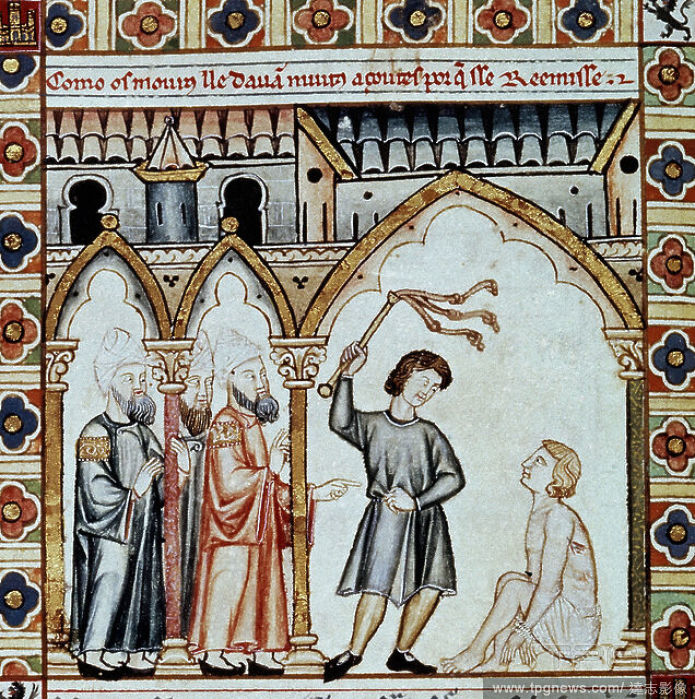 Como os mourꝰ lle dauã muitꝰ açoutes por q̃ sse Reemisse
www.tpgnews.com/ 達志影像